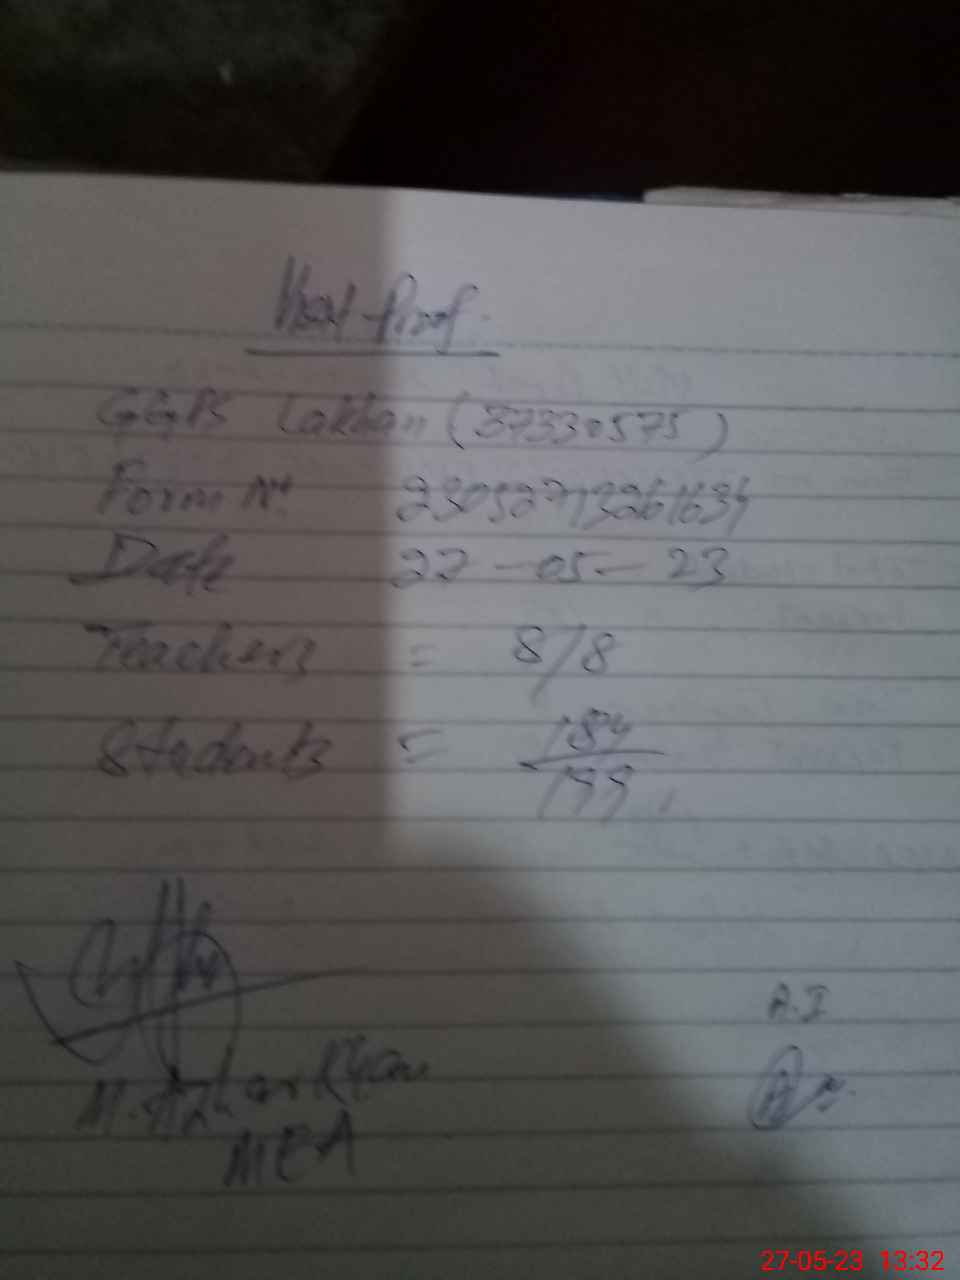 Visit Proof
GGPS Lakhan (37330575)
Form No. 23052713261634
Date 27-05-23
Teachers = 8/8
Students = 184
199
A.I
M. Azhar
MEA
27-05-23 13:32